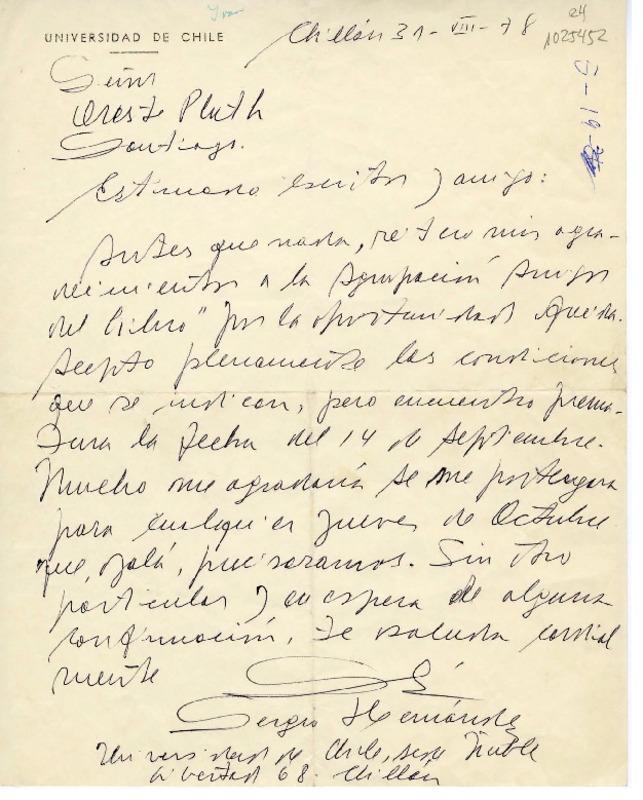 Ivan
24
1025452
UNIVERSIDAD DE CHILE
Chillán 31-VIII-78
Señor
Oreste Plath
Santiago.
Estimado escritor y amigo:
Antes que nada, reitero mis agra-
decimientos a la Agrupación Amigos
del Libro" por la oportunidad que da.
Acepto plenamente las condiciones
que se indican, pero encuentro prema-
tura la fecha del 14 de Septiembre.
Mucho me agradaría se me postergara
para cualquier jueves de Octubre
que, ojalá, precisaramos. Sin otro
particular y en espera de alguna
confirmación, te saluda cordial
mente
Sergio Hernández
Universidad de Chile, sede Ñuble
Libertad 68. Chillán